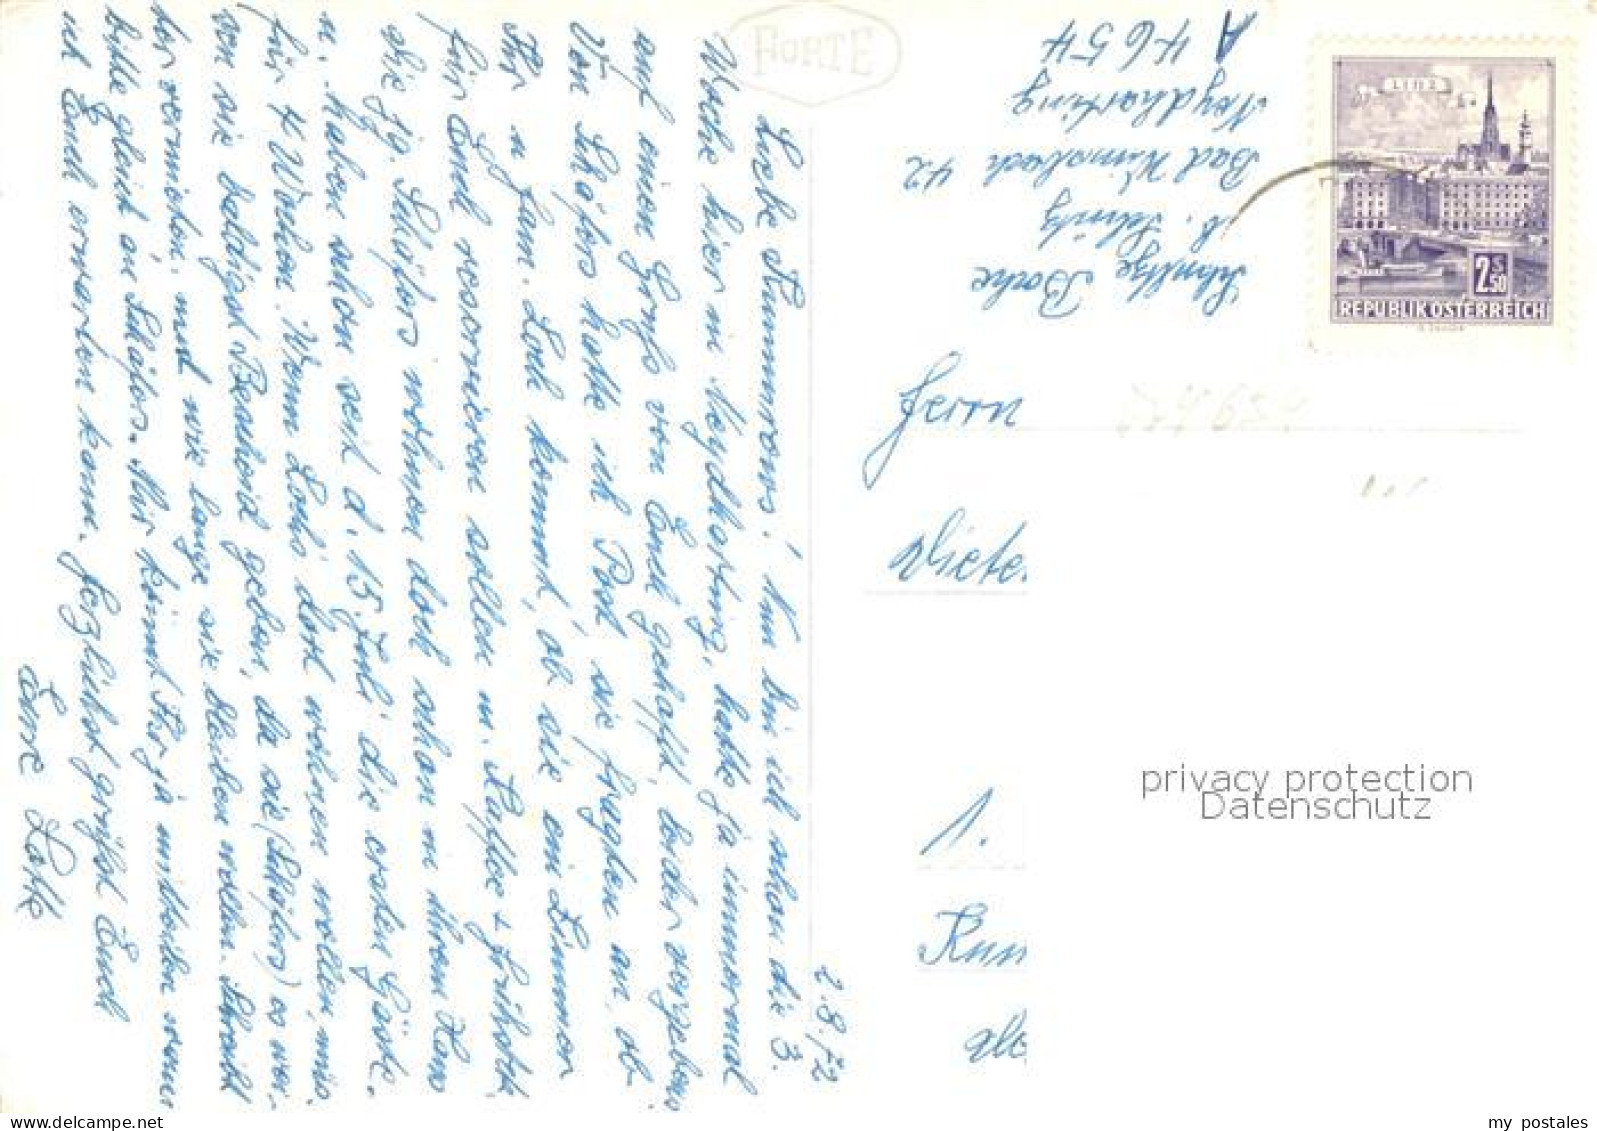 2.8.72
Liebe Kummrows! Nun bin ich schon die 3.
Woche hier in Neydharting, hatte ja immermal
auf einen Gruß von Euch gehofft, leider vergebens.
Von Schäfers hatte ich Post, sie fragten an, ob
Ihr n. fam. Loch kommt, ob sie ein Zimmer
für Euch reservieren sollen m. Kaffee + Frühstk,
die jg. Schäfers wohnen doch schon in ihrem Haus
u. haben schon seit d. 15. Juli die ersten Gäste.
für 4 Wochen. Wenn Lochs dort wohnen wollen, müs-
sen sie baldigst Bescheid geben, da sie (Schäfers) es wei-
ter vermieten, und wie lange sie bleiben wollen. Schreibt
bitte gleich an Schäfers. Mir könnt Ihr ja mitteilen wann
ich Euch erwarten kann. Herzlichst grüßt Euch
Eure Lotte
FORTE
Schnitz
Bad Wimsbach 42
Neydharting
A 4654
LINZ
2 S 50
REPUBLIK ÖSTERREICH
Herrn
Dieter
1.
privacy protection
Datenschutz
delcampe.net
my_postales